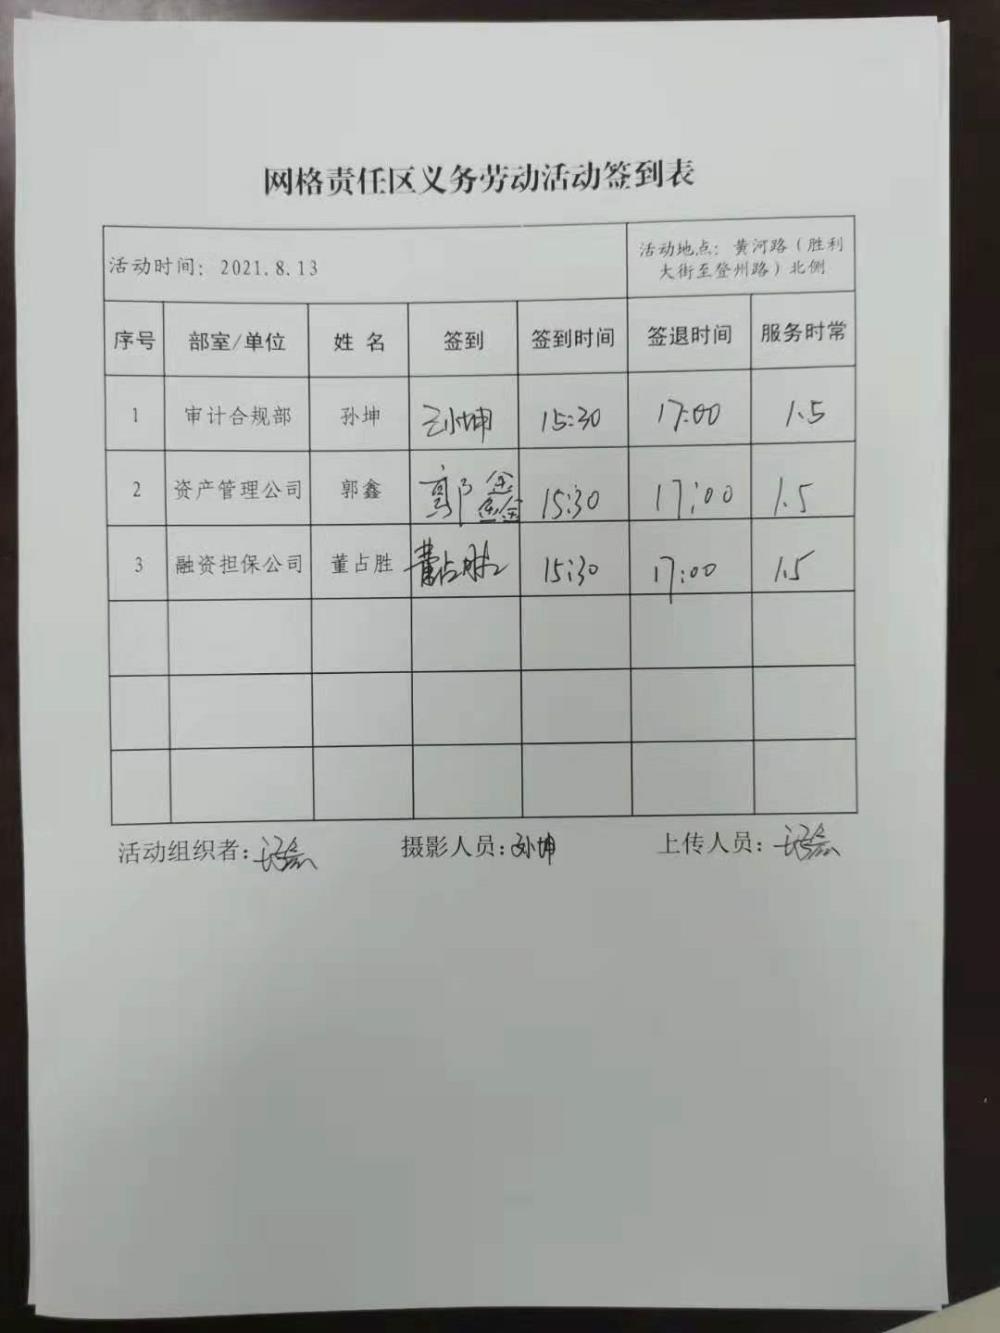 网格责任区义务劳动活动签到表
活动时间：2021.8.13
活动地点：黄河路（胜利
大街至登州路）北侧
序号 部室/单位 姓 名 签到 签到时间 签退时间 服务时常
1 审计合规部 孙坤 孙坤 15:30 17:00 1.5
2 资产管理公司 郭鑫 郭鑫 15:30 17:00 1.5
3 融资担保公司 董占胜 董占胜 15:30 17:00 1.5
活动组织者： 摄影人员：孙坤 上传人员：